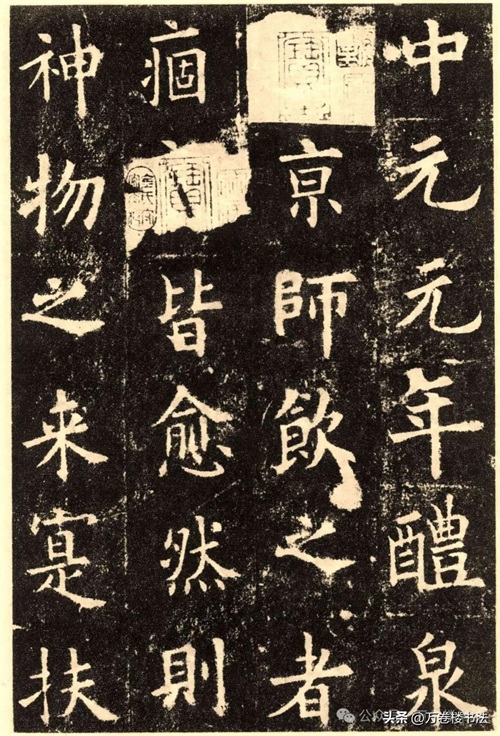 中元元年醴泉
京師飲之者
痼皆愈然則
神物之来寔扶
公众号
头条 @万卷楼书法